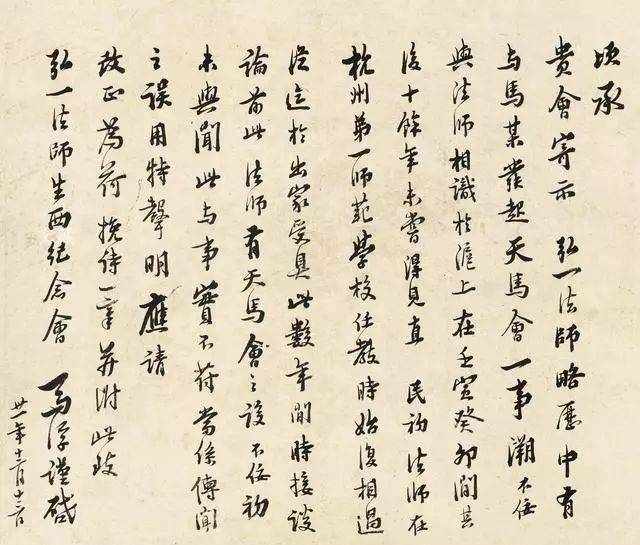 頃承
貴會寄示 弘一法師略歷中有
与馬某發起天馬會一事溯不佞
與法師相識於滬上在壬寅癸卯間其
後十餘年未嘗得見直 民初法師在
杭州第一師範學校任教時始復相過
從迄於出家受具此數年間時接談
論前此法師有天馬會之設不佞初
未與聞此与事實不符當係傳聞
之誤用特聲明應請
改正為荷挽詩一章并附此致
弘一法師生西紀念會 馬浮謹啟
卅一年十二月